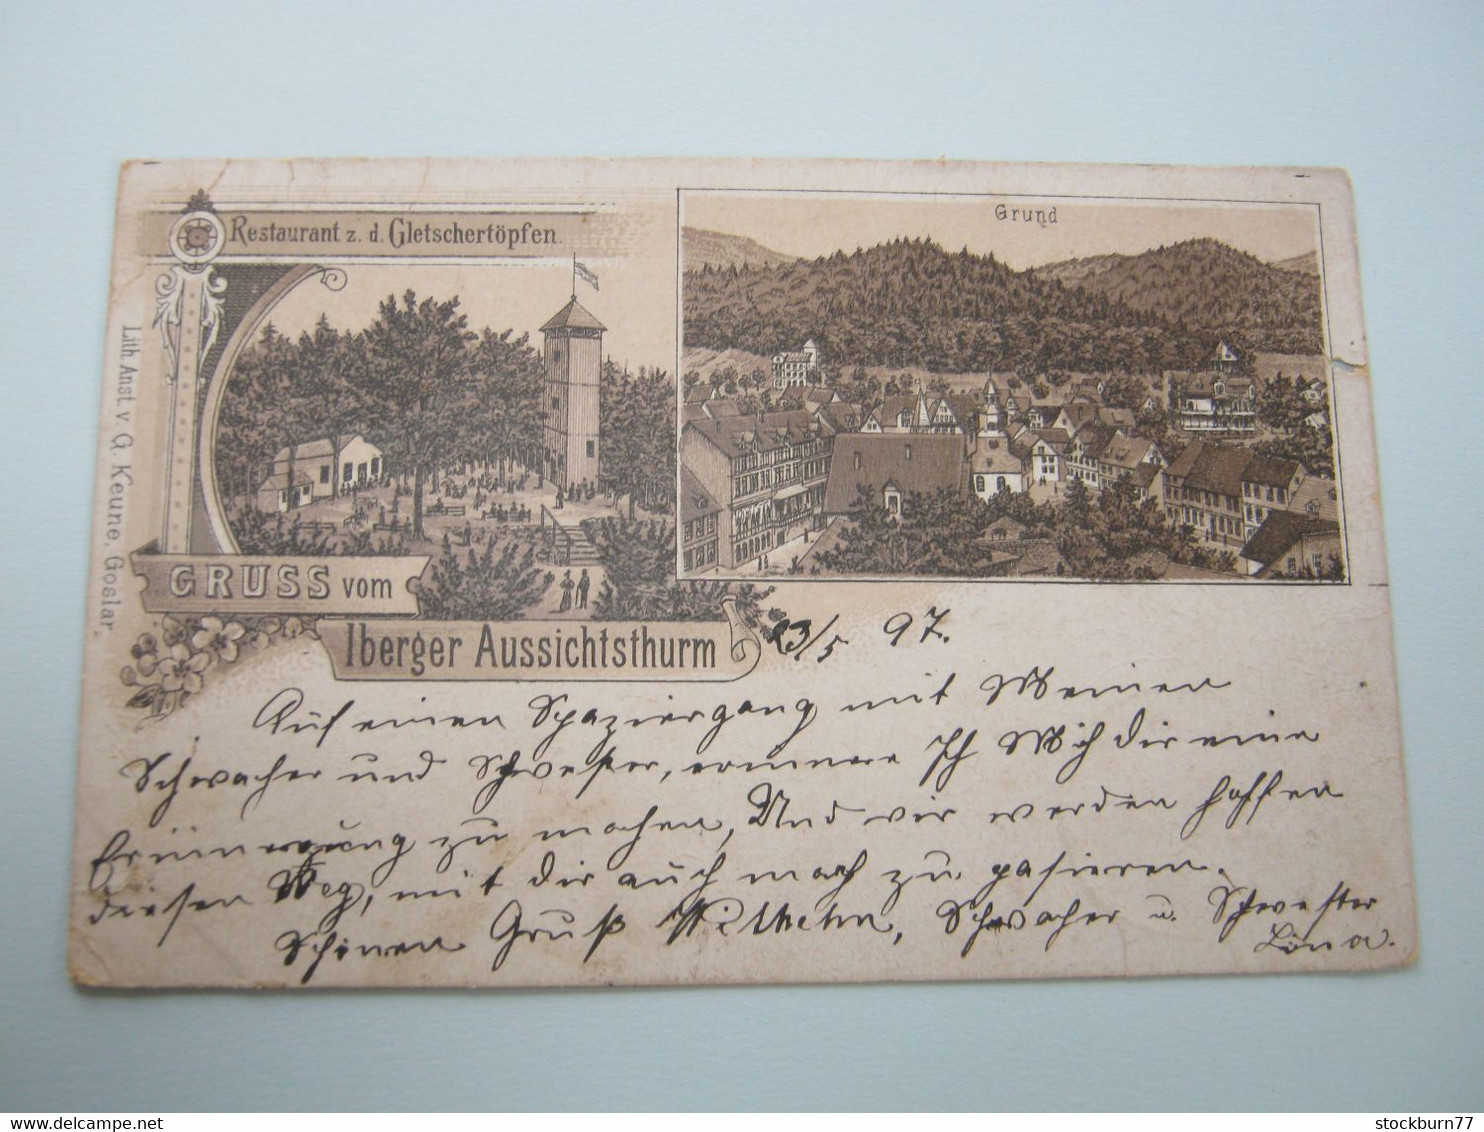 Restaurant z. d. Gletschertöpfen.
Grund
Lith. Anst. v. G. Keune, Goslar.
GRUSS vom
Iberger Aussichtsthurm
23/5 97.
Auf einen Spaziergang mit Meinen
Schwacher und Schwester, erinnere Ich Mich dir eine
Erinnerung zu machen, Und wir werden hoffen
diesen Weg, mit dir auch noch zu pasieren.
Schönen Gruß Wilhelm, Schwacher u. Schwester
Lina.
stockburn77
delcampe.net